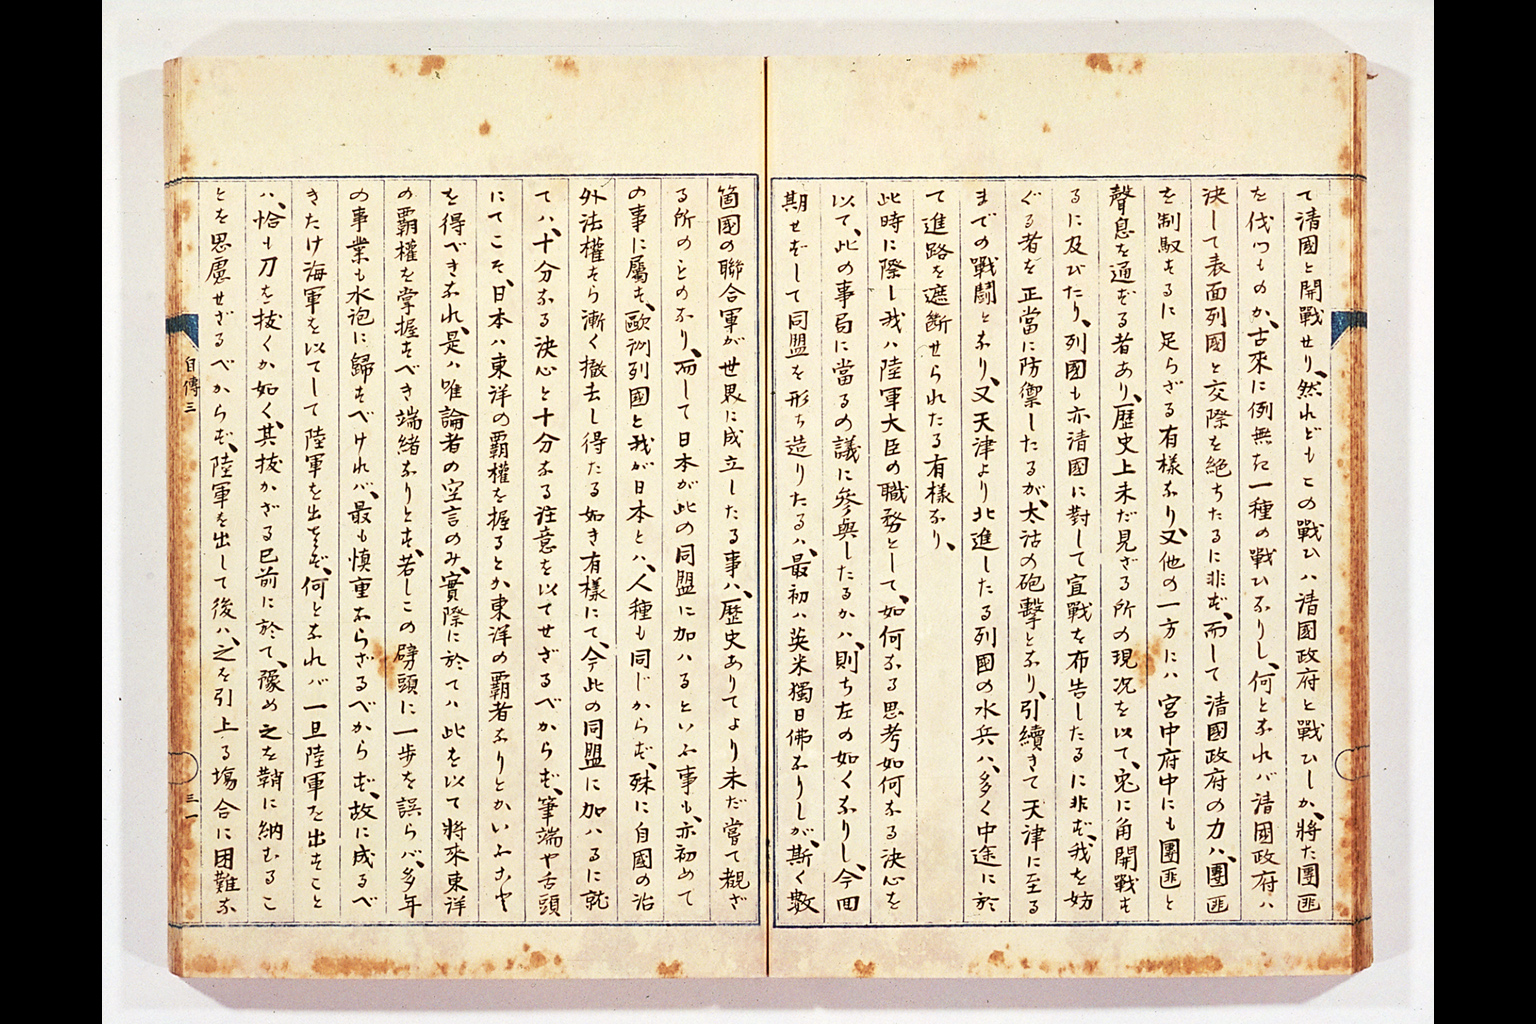 て清國と開戰せり、然れどもこの戰ひハ清國政府と戰ひしか、將た團匪
を伐つものか、古來に例無き一種の戰ひなりし、何となれバ清國政府ハ
決して表面列國と交際を絶ちたるに非ず、而して清國政府の力ハ、團匪
を制馭するに足らざる有樣なり、又他の一方にハ宮中府中にも團匪と
聲息を通ずる者あり、歴史上未だ見ざる所の現况を以て、兎に角開戰も
るに及びたり、列國も亦清國に對して宣戰を布告したるに非ず、我を妨
ぐる者を正當に防禦したるが、太沽の砲擊となり、引續きて天津に至る
までの戰鬪となり、又天津より北進したる列國の水兵ハ、多く中途に於
て進路を遮斷せられたる有樣なり、
此時に際し我ハ陸軍大臣の職務として、如何なる思考如何なる決心を
以て、此の事局に當るの議に參與したるかハ、則ち左の如くなりし、今回
期せずして同盟を形ち造りたるハ、最初ハ英米獨日佛なりしが、斯く數
箇國の聯合軍が世界に成立したる事ハ、歴史ありてより未だ嘗て觀ざ
る所のものなり、而して日本が此の同盟に加ハるといふ事も、亦初めて
の事に屬す、歐洲列國と我が日本とハ、人種も同じからず、殊に自國の治
外法權すら漸く撤去し得たる如き有樣にて、今此の同盟に加ハるに就
てハ、十分なる決心と十分なる注意を以てせざるべからず、筆端や舌頭
にてこそ、日本ハ東洋の覇權を握るとか東洋の覇者なりとかいふことや
を得べきなれ、是ハ唯論者の空言のみ、實際に於てハ此を以て將來東洋
の覇權を掌握すべき端緒なりとす、若しこの劈頭に一歩を誤らバ、多年
の事業も水泡に歸すべけれバ、最も愼重ならざるべからず、故に成るべ
きたけ海軍を以てして陸軍を出さず、何となれバ一旦陸軍を出すこと
ハ、恰も刀を拔くか如く、其拔かざる已前に於て、豫め之を鞘に納むるこ
とを思慮せざるべからず、陸軍を出して後ハ、之を引上る塲合に困難な
自傳三
三一